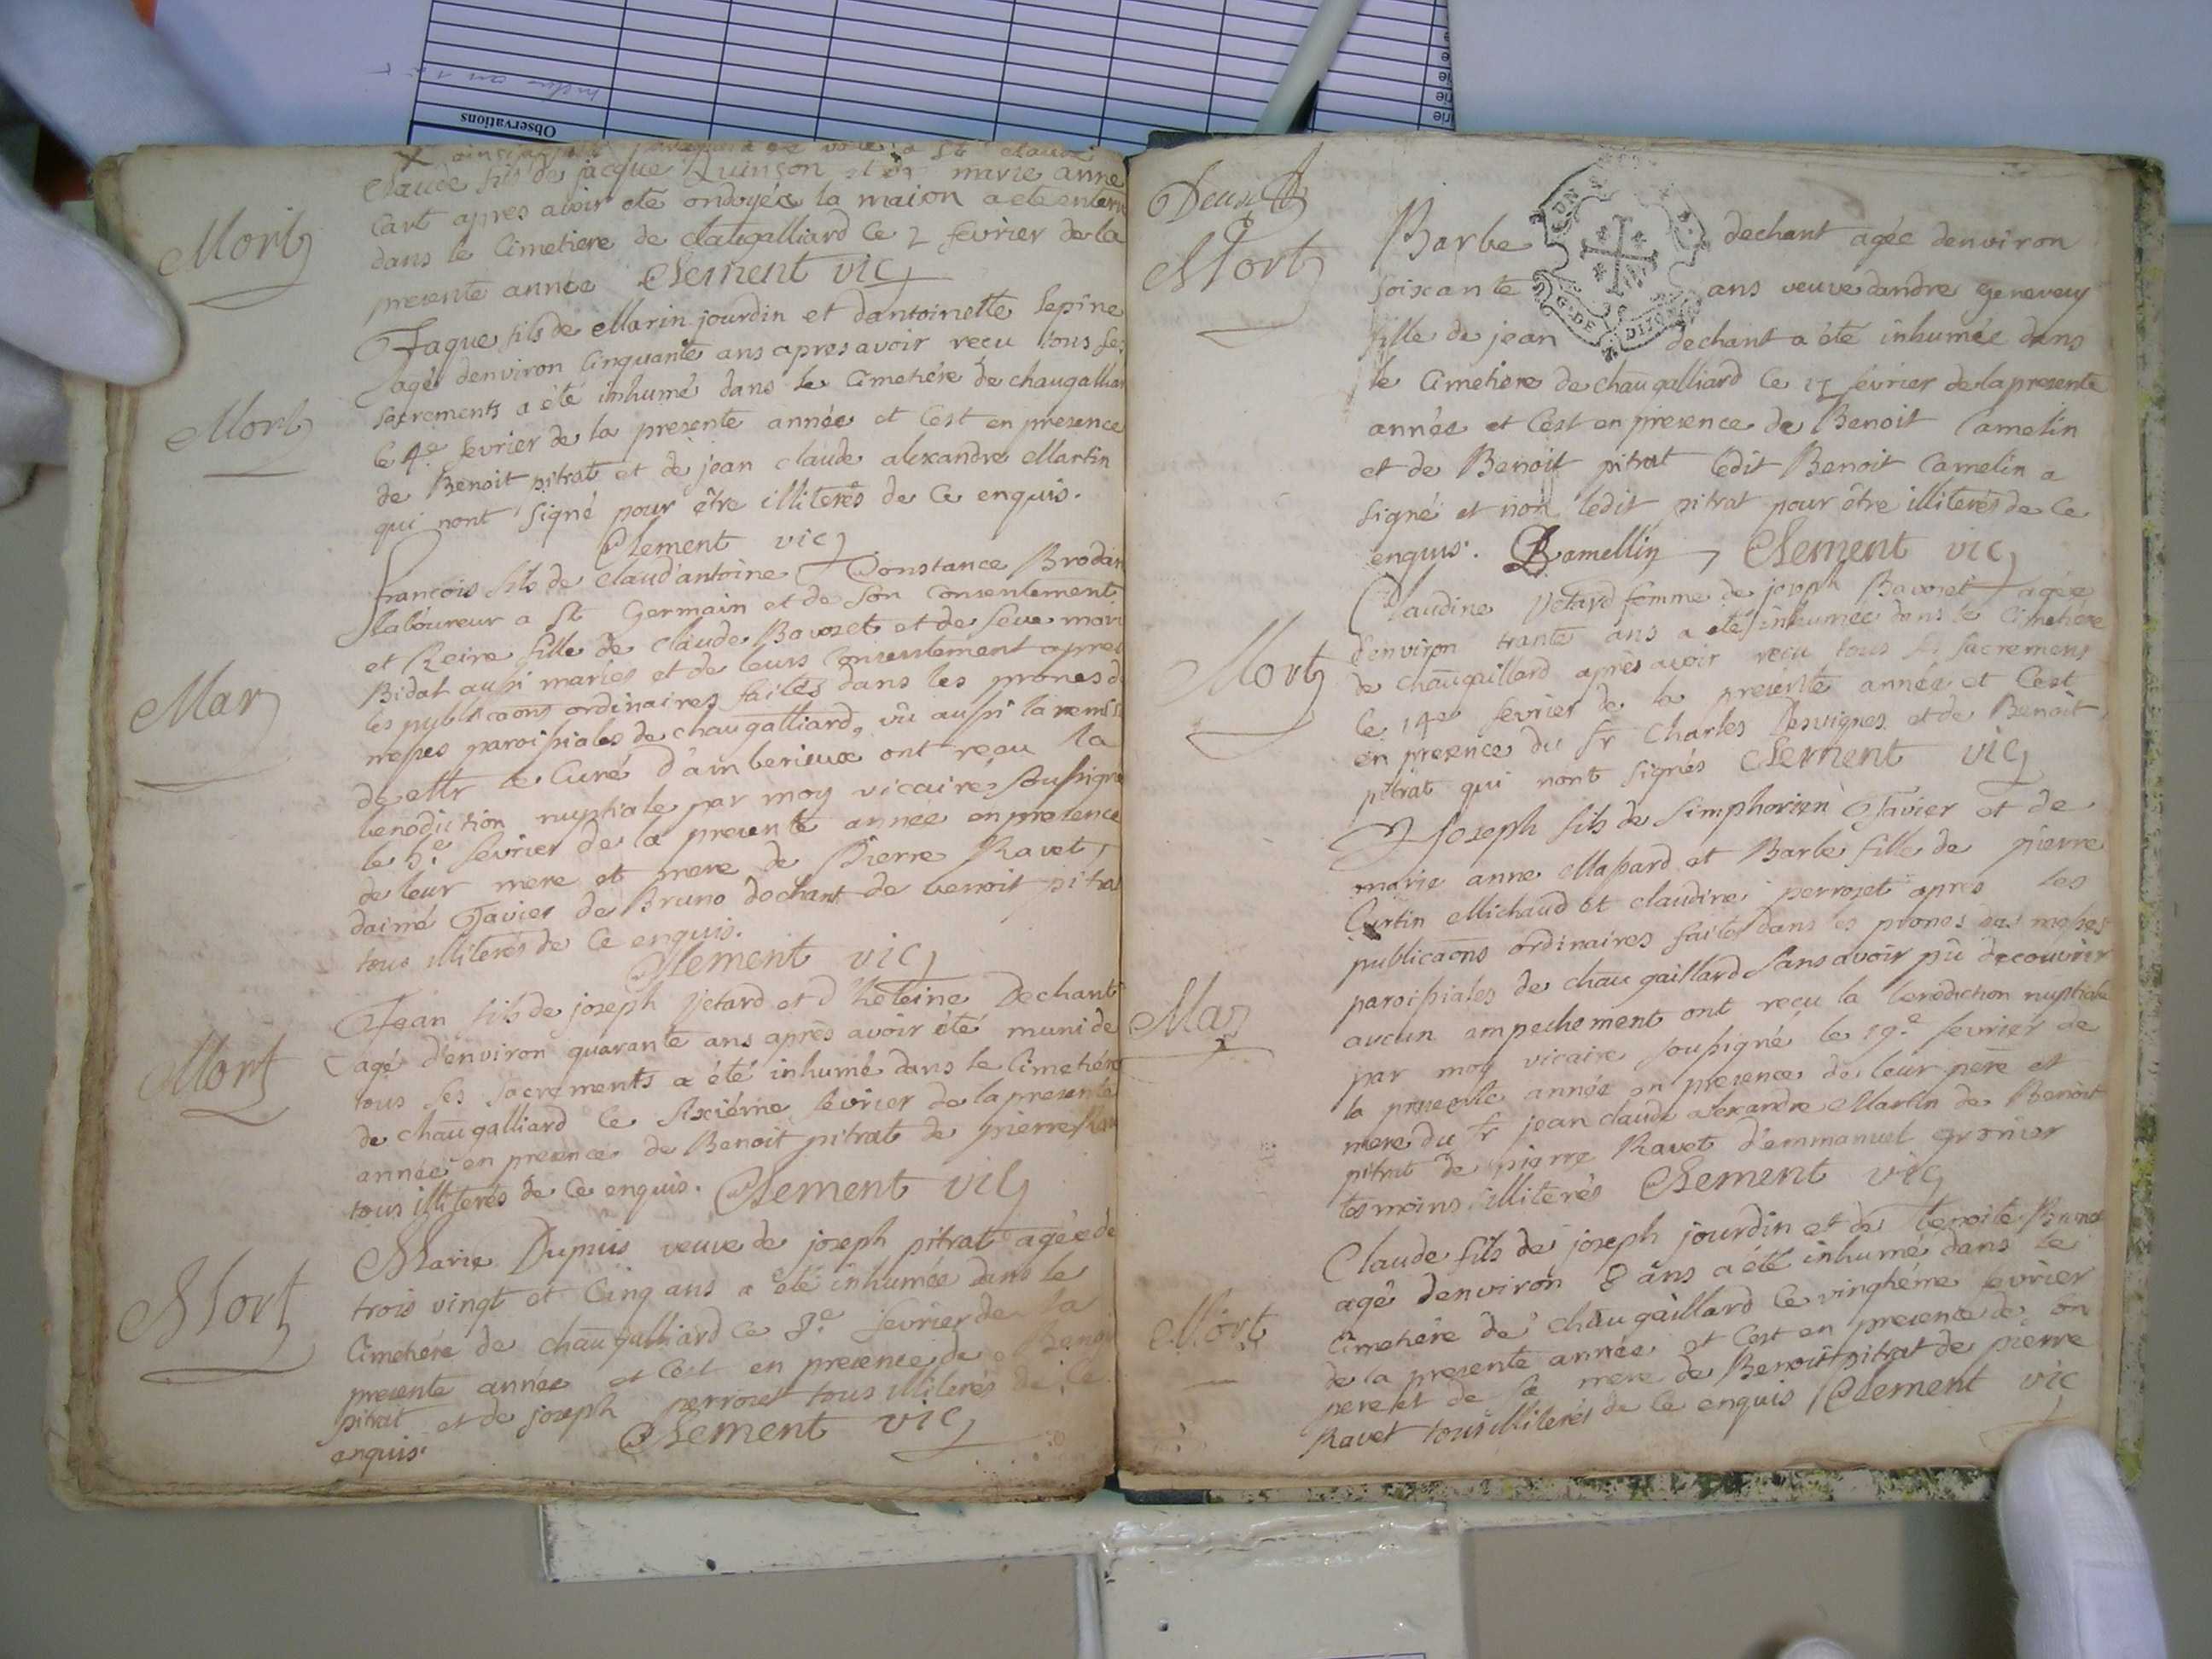 Observations
Claude fils de jacque Quinson et de marie anne
Cart apres avoir eté ondoyée la maison a eté enterré
Mort
dans le Cimetiere de chaugalliard le 2 fevrier de la
presente année Clement vic
Jaque fils de Marin jourdin et dantoinette lepine
agé denviron Cinquante ans apres avoir recu tous ses
Mort
sacrements a été inhumé dans le Cimetiére de chaugalliar
le 4.e fevrier de la presente année et Cest en presence
de Benoit pitrat et de jean claude alexandre Martin
qui nont signé pour être illiterés de Ce enquis.
Clement vic
francois fils de claud'antoine Constance Brodan
laboureur a St Germain et de son Consentement
et Reine fille de claude Bavozet et de feue mari
Mar
Bidat aussi mariés et de leurs Consentement apres
les publicaons ordinaires faites dans les prones d
messes paroissiales de chaugalliard, vû aussi la remis
de Mr le Curé d'amberieux ont reçu la
benediction nuptiale par moy vicaire soussigné
le 5.e fevrier de la presente année en presence
de leur mere et mere de Pierre Ravet,
dainé Tavier de Bruno dechant de benoit pitra
tous illiterés de Ce enquis.
Clement vic
Jean fils de joseph Jetard et d'heleine Dechant
agé d'environ quarante ans après avoir été muni de
Mort
tous ses sacrements a été inhumé dans le Cimetiére
de chaugalliard le sixiéme fevrier de la presente
année en presence de Benoit pitrat de pierre Rav
tous illiterés de Ce enquis. Clement vic
Marie Dupuis veuve de joseph pitrat agée de
trois vingt et Cinq ans a été inhumée dans le
Mort
Cimetiére de chaugalliard le 8.e fevrier de la
presente année et Cest en presence de Benoi
pitrat et de joseph perrozet tous illiterés de Ce
enquis. Clement vic
Mort
Barbe dechant agée denviron
soixante ans veuve dandré Geneveuy
fille de jean dechant a été inhumée dans
le Cimetiere de chaugalliard le fevrier de la presente
année et Cest en presence de Benoit Camelin
et de Benoit pitrat ledit Benoit Camelin a
signé et non ledit pitrat pour être illiterés de Ce
enquis. Bamellin, Clement vic
Claudine Jetard femme de joseph Bavozet agée
denviron trante ans a été inhumée dans le Cimetiére
Mort
de chaugaillard après avoir reçu tous ses sacremens
le 14e fevrier de la presente année et Cest
en presence du sr Charles Desvignes et de Benoit
pitrat qui nont signés Clement vic
Joseph fils de simphorien Tavier et de
marie anne Massard et Barbe fille de pierre
Curtin Michaud et claudine perrozet apres les
publicaons ordinaires faites dans les prones des messes
paroissiales de chaugaillard sans avoir pû decouvrir
Mar
aucun empechement ont recu la benediction nuptiale
par moy vicaire soussigné le 19.e fevrier de
la presente année en presence de leur pere et
mere du sr jean claude alexandre Martin de Benoit
pitrat de pierre Ravet d'emmanuel gronier
tesmoins illiterés Clement vic
Claude fils de joseph jourdin et de benoite Brunet
agé denviron 8 ans a été inhumé dans le
Mort
Cimetiére de chaugaillard le vingtiéme fevrier
de la presente année et Cest en presence de son
pere et de sa mere de Benoit pitrat de pierre
Ravet tous illiterés de Ce enquis Clement vic